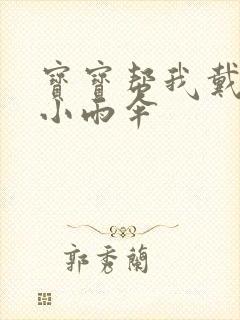 寶寶幫我戴
小雨伞
郭秀蘭